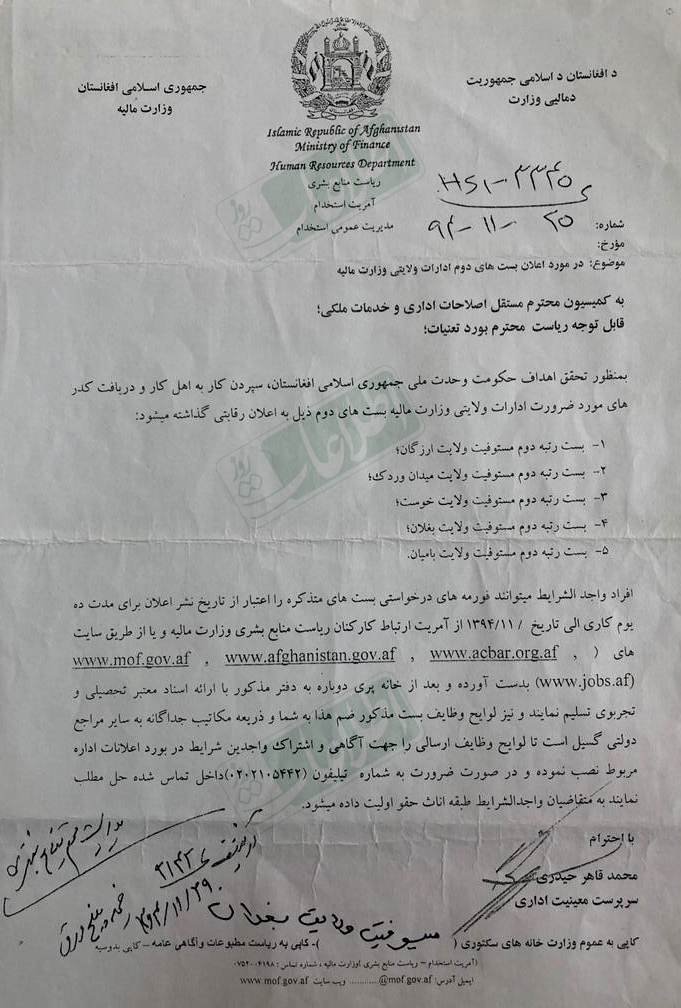 د افغانستان د اسلامی جمهوریت
دمالیی وزارت
جمهوری اسلامی افغانستان
وزارت مالیه
Islamic Republic of Afghanistan
Ministry of Finance
Human Resources Department
ریاست منابع بشری
آمریت استخدام
مدیریت عمومی استخدام
شماره:
مؤرخ:
موضوع: در مورد اعلان بست های دوم ادارات ولایتی وزارت مالیه
به کمیسیون محترم مستقل اصلاحات اداری و خدمات ملکی؛
قابل توجه ریاست محترم بورد تعنیات؛
بمنظور تحقق اهداف حکومت وحدت ملی جمهوری اسلامی افغانستان، سپردن کار به اهل کار و دریافت کدر
های مورد ضرورت ادارات ولایتی وزارت مالیه بست های دوم ذیل به اعلان رقابتی گذاشته میشود:
۱- بست رتبه دوم مستوفیت ولایت ارزگان؛
۲- بست رتبه دوم مستوفیت ولایت میدان وردک؛
۳- بست رتبه دوم مستوفیت ولایت خوست؛
۴- بست رتبه دوم مستوفیت ولایت بغلان؛
۵- بست رتبه دوم مستوفیت ولایت بامیان.
افراد واجد الشرایط میتوانند فورمه های درخواستی بست های متذکره را اعتبار از تاریخ نشر اعلان برای مدت ده
یوم کاری الی تاریخ / ۱۳۹۴/۱۱ از آمریت ارتباط کارکنان ریاست منابع بشری وزارت مالیه و یا از طریق سایت
های ( , www.mof.gov.af , www.afghanistan.gov.af , www.acbar.org.af
(www.jobs.af) بدست آورده و بعد از خانه پری دوباره به دفتر مذکور با ارائه اسناد معتبر تحصیلی و
تجربوی تسلیم نمایند و نیز لوایح وظایف بست مذکور ضم هذا به شما و ذریعه مکاتیب جداگانه به سایر مراجع
دولتی گسیل است تا لوایح وظایف ارسالی را جهت آگاهی و اشتراک واجدین شرایط در بورد اعلانات اداره
مربوط نصب نموده و در صورت ضرورت به شماره تیلیفون (۰۲۰۲۱۰۵۴۴۲)داخل تماس شده حل مطلب
نمایند به متقاضیان واجدالشرایط طبقه اناث حقو اولیت داده میشود.
با احترام
محمد قاهر حیدری
سرپرست معینیت اداری
کاپی به عموم وزارت خانه های سکتوری ( مستوفیت ولایت بغلان )- کاپی به ریاست مطبوعات وآگاهی عامه – کاپی بدوسیه
(آمریت استخدام – ریاست منابع بشری /وزارت مالیه ، شماره تماس : ۰۷۵۲۰۰۴۱۹۸)
ایمیل آدرس: ............@mof.gov.af ویب سایت www.mof.gov.af
اطلاعات روز